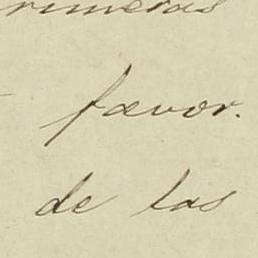 primeras
favor.
de las